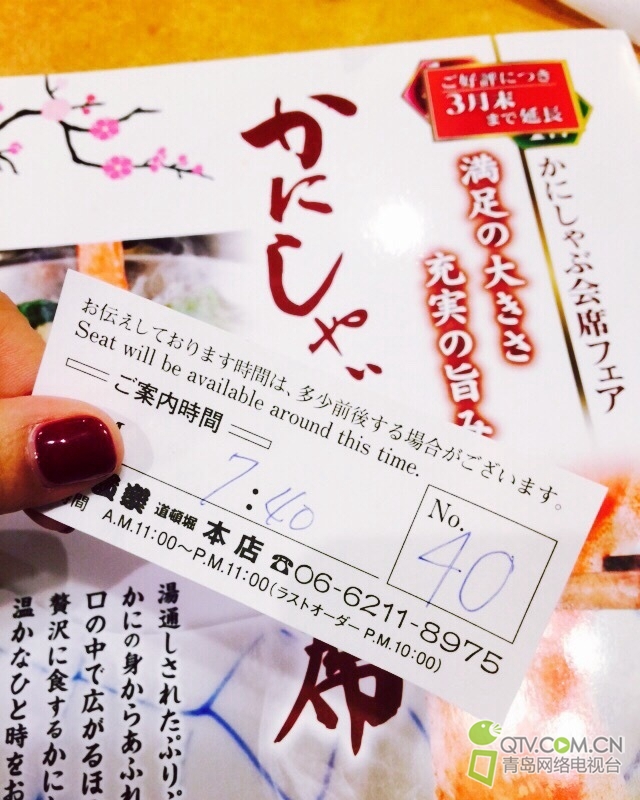 ご好評につき
3月末
まで延長
かにしゃぶ会席フェア
満足の大きさ
充実の旨み
かにしゃぶ
席
お伝えしております時間は、多少前後する場合がございます。
Seat will be available around this time.
ご案内時間
7:40
No.
40
楽 道頓堀 本店 ☎06-6211-8975
時間 A.M.11:00～P.M.11:00(ラストオーダー P.M.10:00)
湯通しされたぷりぷ
かにの身からあふれ
口の中で広がるほ
贅沢に食するかに
温かなひと時をお
QTV.COM.CN
青岛网络电视台